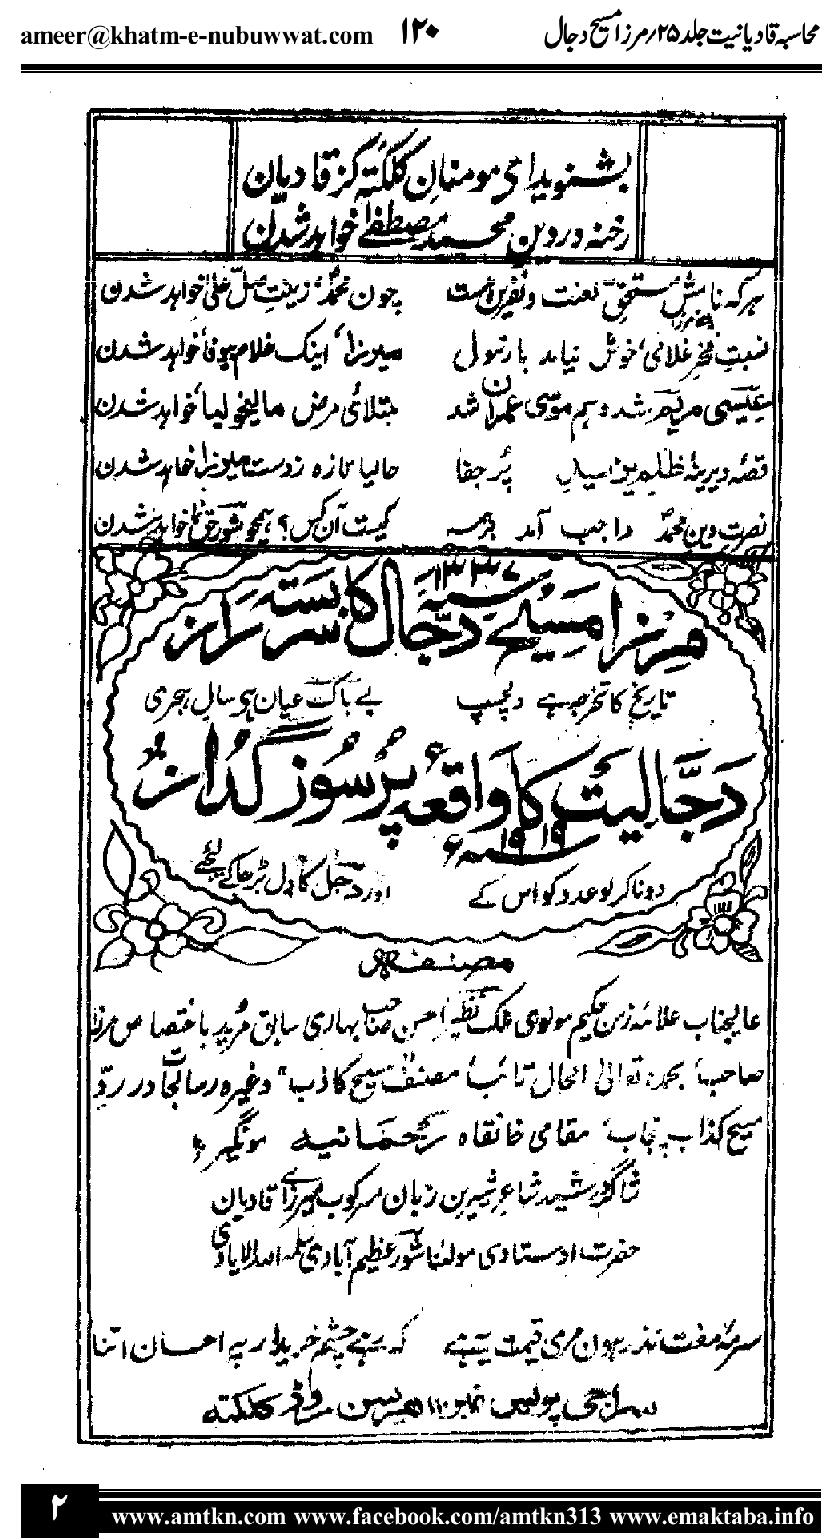 ameer@khatm-e-nubuwwat.com ۱۲۰ محاسبہ قادیانیت جلد ۲۵/مرزا مسیح دجال
بشنوید اے مومنانِ کلکتہ کز قادیان
رخنہ در دین محمد مصطفےٰ خواہد شدن
ہر کہ نامش مستحقِ لعنت و نفرین است چون محمدؐ زینتِ صل علیٰ خواہد شدن
نسبتِ فخرِ غلامی خوش نیاید با رسول میرزا اینک غلام بیوفا خواہد شدن
عیسیٰ مریم شد و ہم موسیٰ عمران شد مبتلائی مرض مالیخولیا خواہد شدن
قصہ دیرینہ ظلم پر جفا حالیا تازہ ز دست میرزا خواہد شدن
نصرتِ دین محمدؐ واجب آمد بر ہمہ کیست آن کس؟ ہمچو شور حق نما خواہد شدن
۱۳۳۷
مرزا مسیح دجال کا سربستہ راز
تاریخ کا تخرجہ ہے دلچسپ بے باک عیان ہی سالِ ہجری
دجالیت کا واقعہ پُر سوز گداز
۱۹۱۹ء
دونا کر لو عدد کو اس کے اور دجل کا دل بڑھا کے لکھئے
مصنفہ
عالیجناب علامہ زمن حکیم مولوی ملک نظیر احسن صاحب بہاری سابق مرید باختصاص مرزا
صاحب بحمدہ تعالیٰ الحال تائب مصنف مسیح کاذب" وغیرہ رسالجات در ردِّ
مسیح کذاب پنجاب مقامی خانقاہ رحمانیہ مونگیر
شاگرد رشید شاعر شیرین زبان سرکوب میرزائے قادیان
حضرت اوستادی مولٰنا شور عظیم آبادی سلمہ اللہ الہادی
سرمہ مفت نذر ہون مری قیمت یہ ہے کہ رہے چشم خریدار پہ احسان اتنا
ستارہ پریس نمبر ہریسن روڈ کلکتہ
۲ www.amtkn.com www.facebook.com/amtkn313 www.emaktaba.info